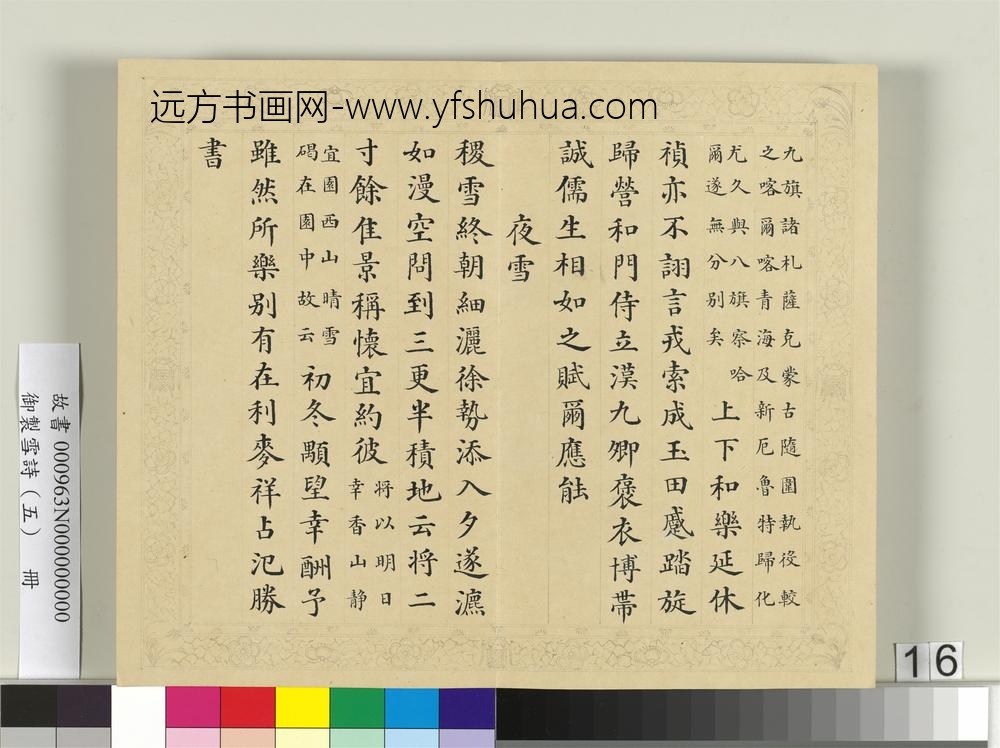 远方书画网-www.yfshuhua.com
九旗諸札薩克蒙古隨圍執役較
之喀爾喀青海及新厄魯特歸化
尤久與八旗察哈
爾遂無分别矣
上下和樂延休
禎亦不詡言戎索成玉田蹙踏旋
歸營和門侍立漠九卿褒衣博帶
誠儒生相如之賦爾應能
夜雪
稷雪終朝細灑徐勢添入夕遂瀌
如漫空問到三更半積地云将二
寸餘佳景稱懷宜約彼
将以明日
幸香山静
宜園西山晴雪
碣在園中故云
初冬顒望幸酬予
雖然所樂别有在利麥祥占氾勝
書
故書 000963N000000000
御製雪詩(五) 冊
16